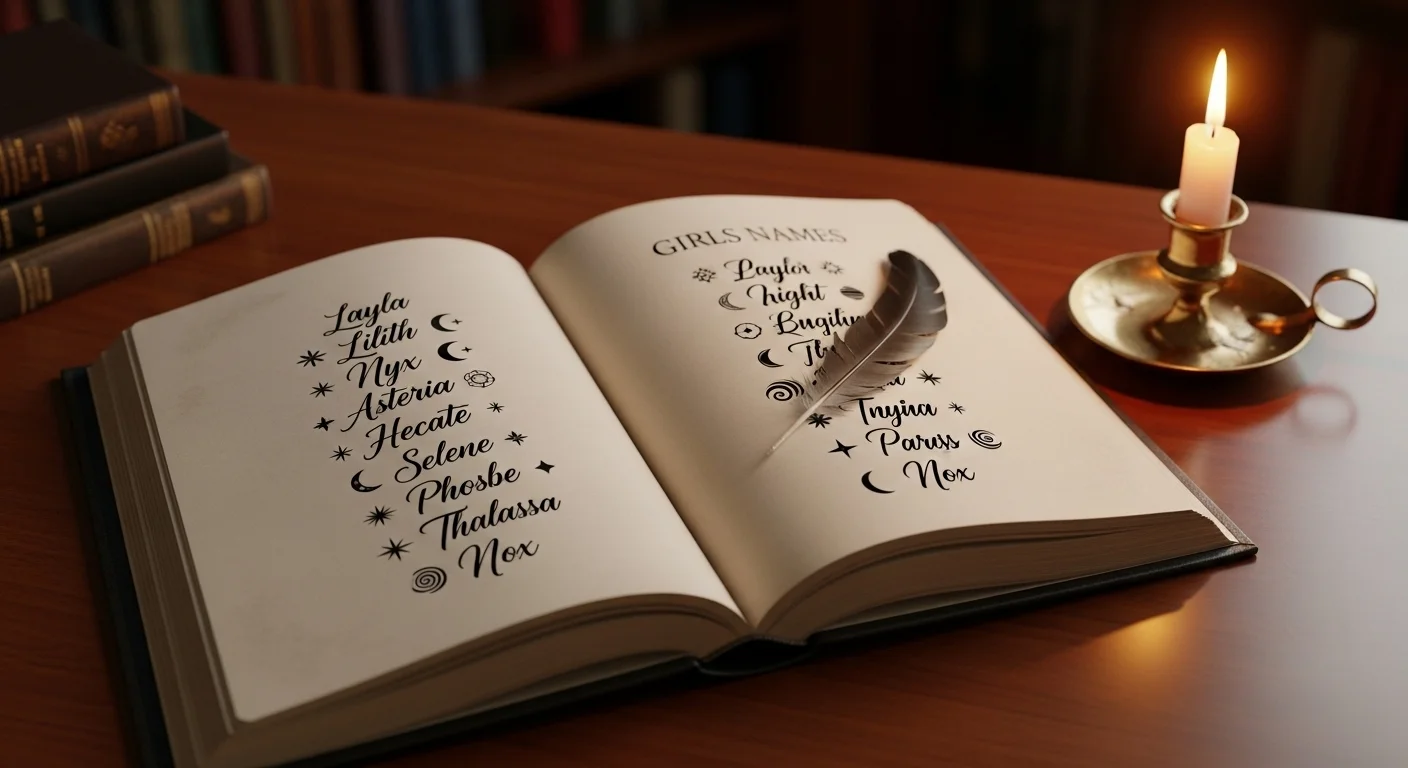 Layla
Lilith
Nyx
Asteria
Hecate
Selene
Phosbe
Thalassa
Nox
GIRLS NAMES
Laylor
Inyina
Paruss
Nox